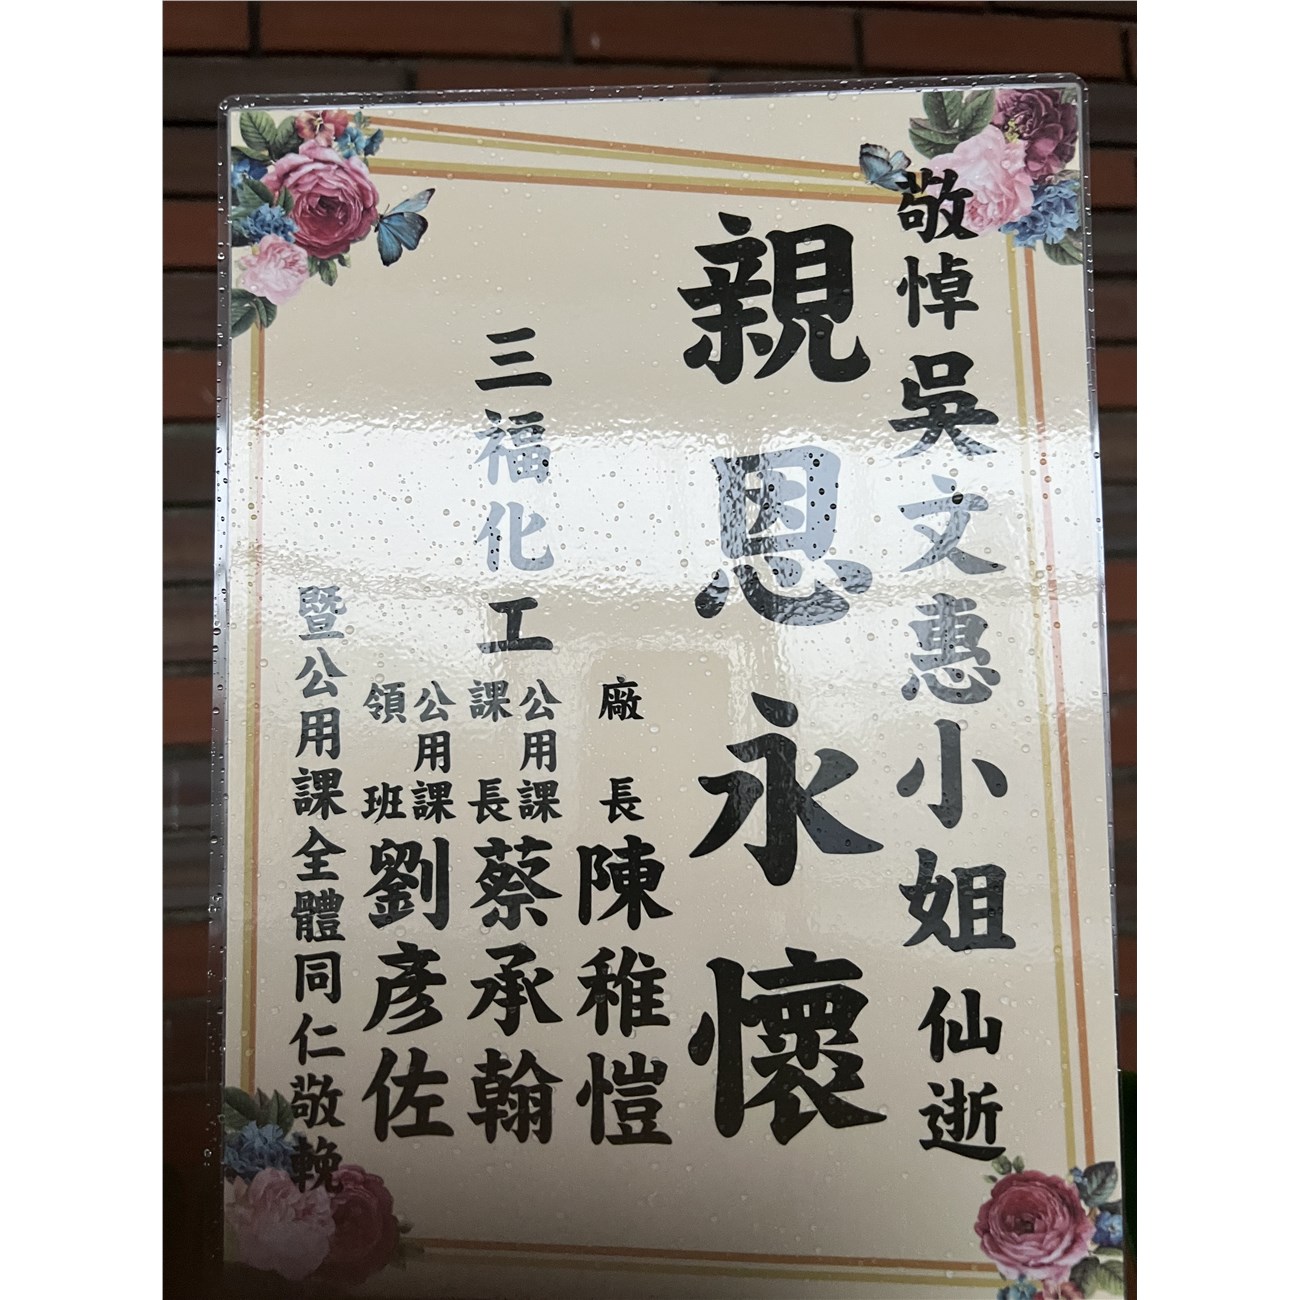 敬悼吳文惠小姐仙逝
親恩永懷
廠長陳稚愷
三福化工
公用課
課長蔡承翰
公用課
領班劉彥佐
暨公用課全體同仁敬輓